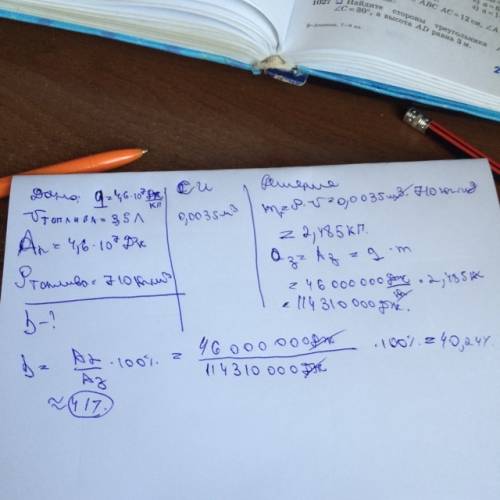 1027 Найдите стороны треугольника
∠C = 30°, а высота AD равна 3 м.
Дано: q = 4,6·10⁷ Дж/кг
V топлива = 3,5 л
Aп = 4,6·10⁷ Дж
ρ топливо = 710 кг/м³
η - ?
СИ
0,0035 м³
Решение
m = ρ·V = 0,0035 м³·710 кг/м³
= 2,485 кг.
Qз = Aз = q·m
= 46000000 Дж/кг · 2,485 кг
= 114310000 Дж.
η = Aп/Aз ·100% = 46 000 000 Дж / 114310000 Дж ·100% = 40,24%
≈ 41%.